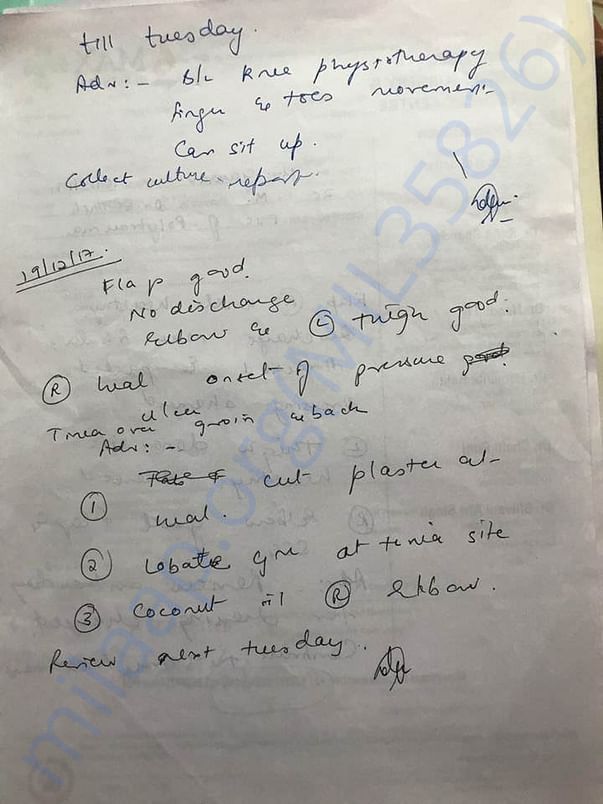 till tuesday.
Adv:- B/L knee physiotherapy
finger & toes movement-
Can sit up.
Collect culture report.
19/12/17.
Flap good.
No discharge
Elbow & (L) thigh good.
(R) heal onset of pressure
ulcer
Tinea over groin & back
Adv:-
(1) cut plaster at
heal.
(2) Lobate gm at tinia site
(3) coconut oil (R) Elbow.
Review next tuesday.
milaap.org(MIL35826)